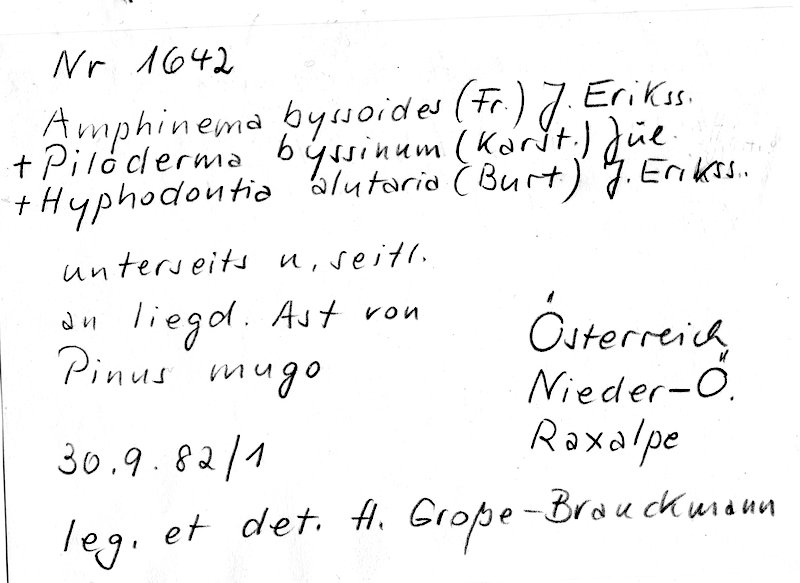 Nr 1642
Amphinema byssoides (Fr.) J. Erikss.
+ Piloderma byssinum (Karst.) Jül.
+ Hyphodontia alutaria (Burt) J. Erikss.
unterseits u. seitl.
an liegd. Ast von
Pinus mugo
Österreich
Nieder-Ö.
Raxalpe
30.9.82/1
leg. et det. H. Große-Brauckmann